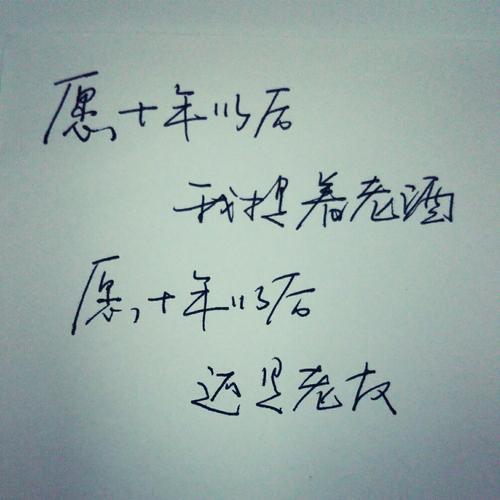 愿，十年以后
我提着老酒
愿，十年以后
还是老友